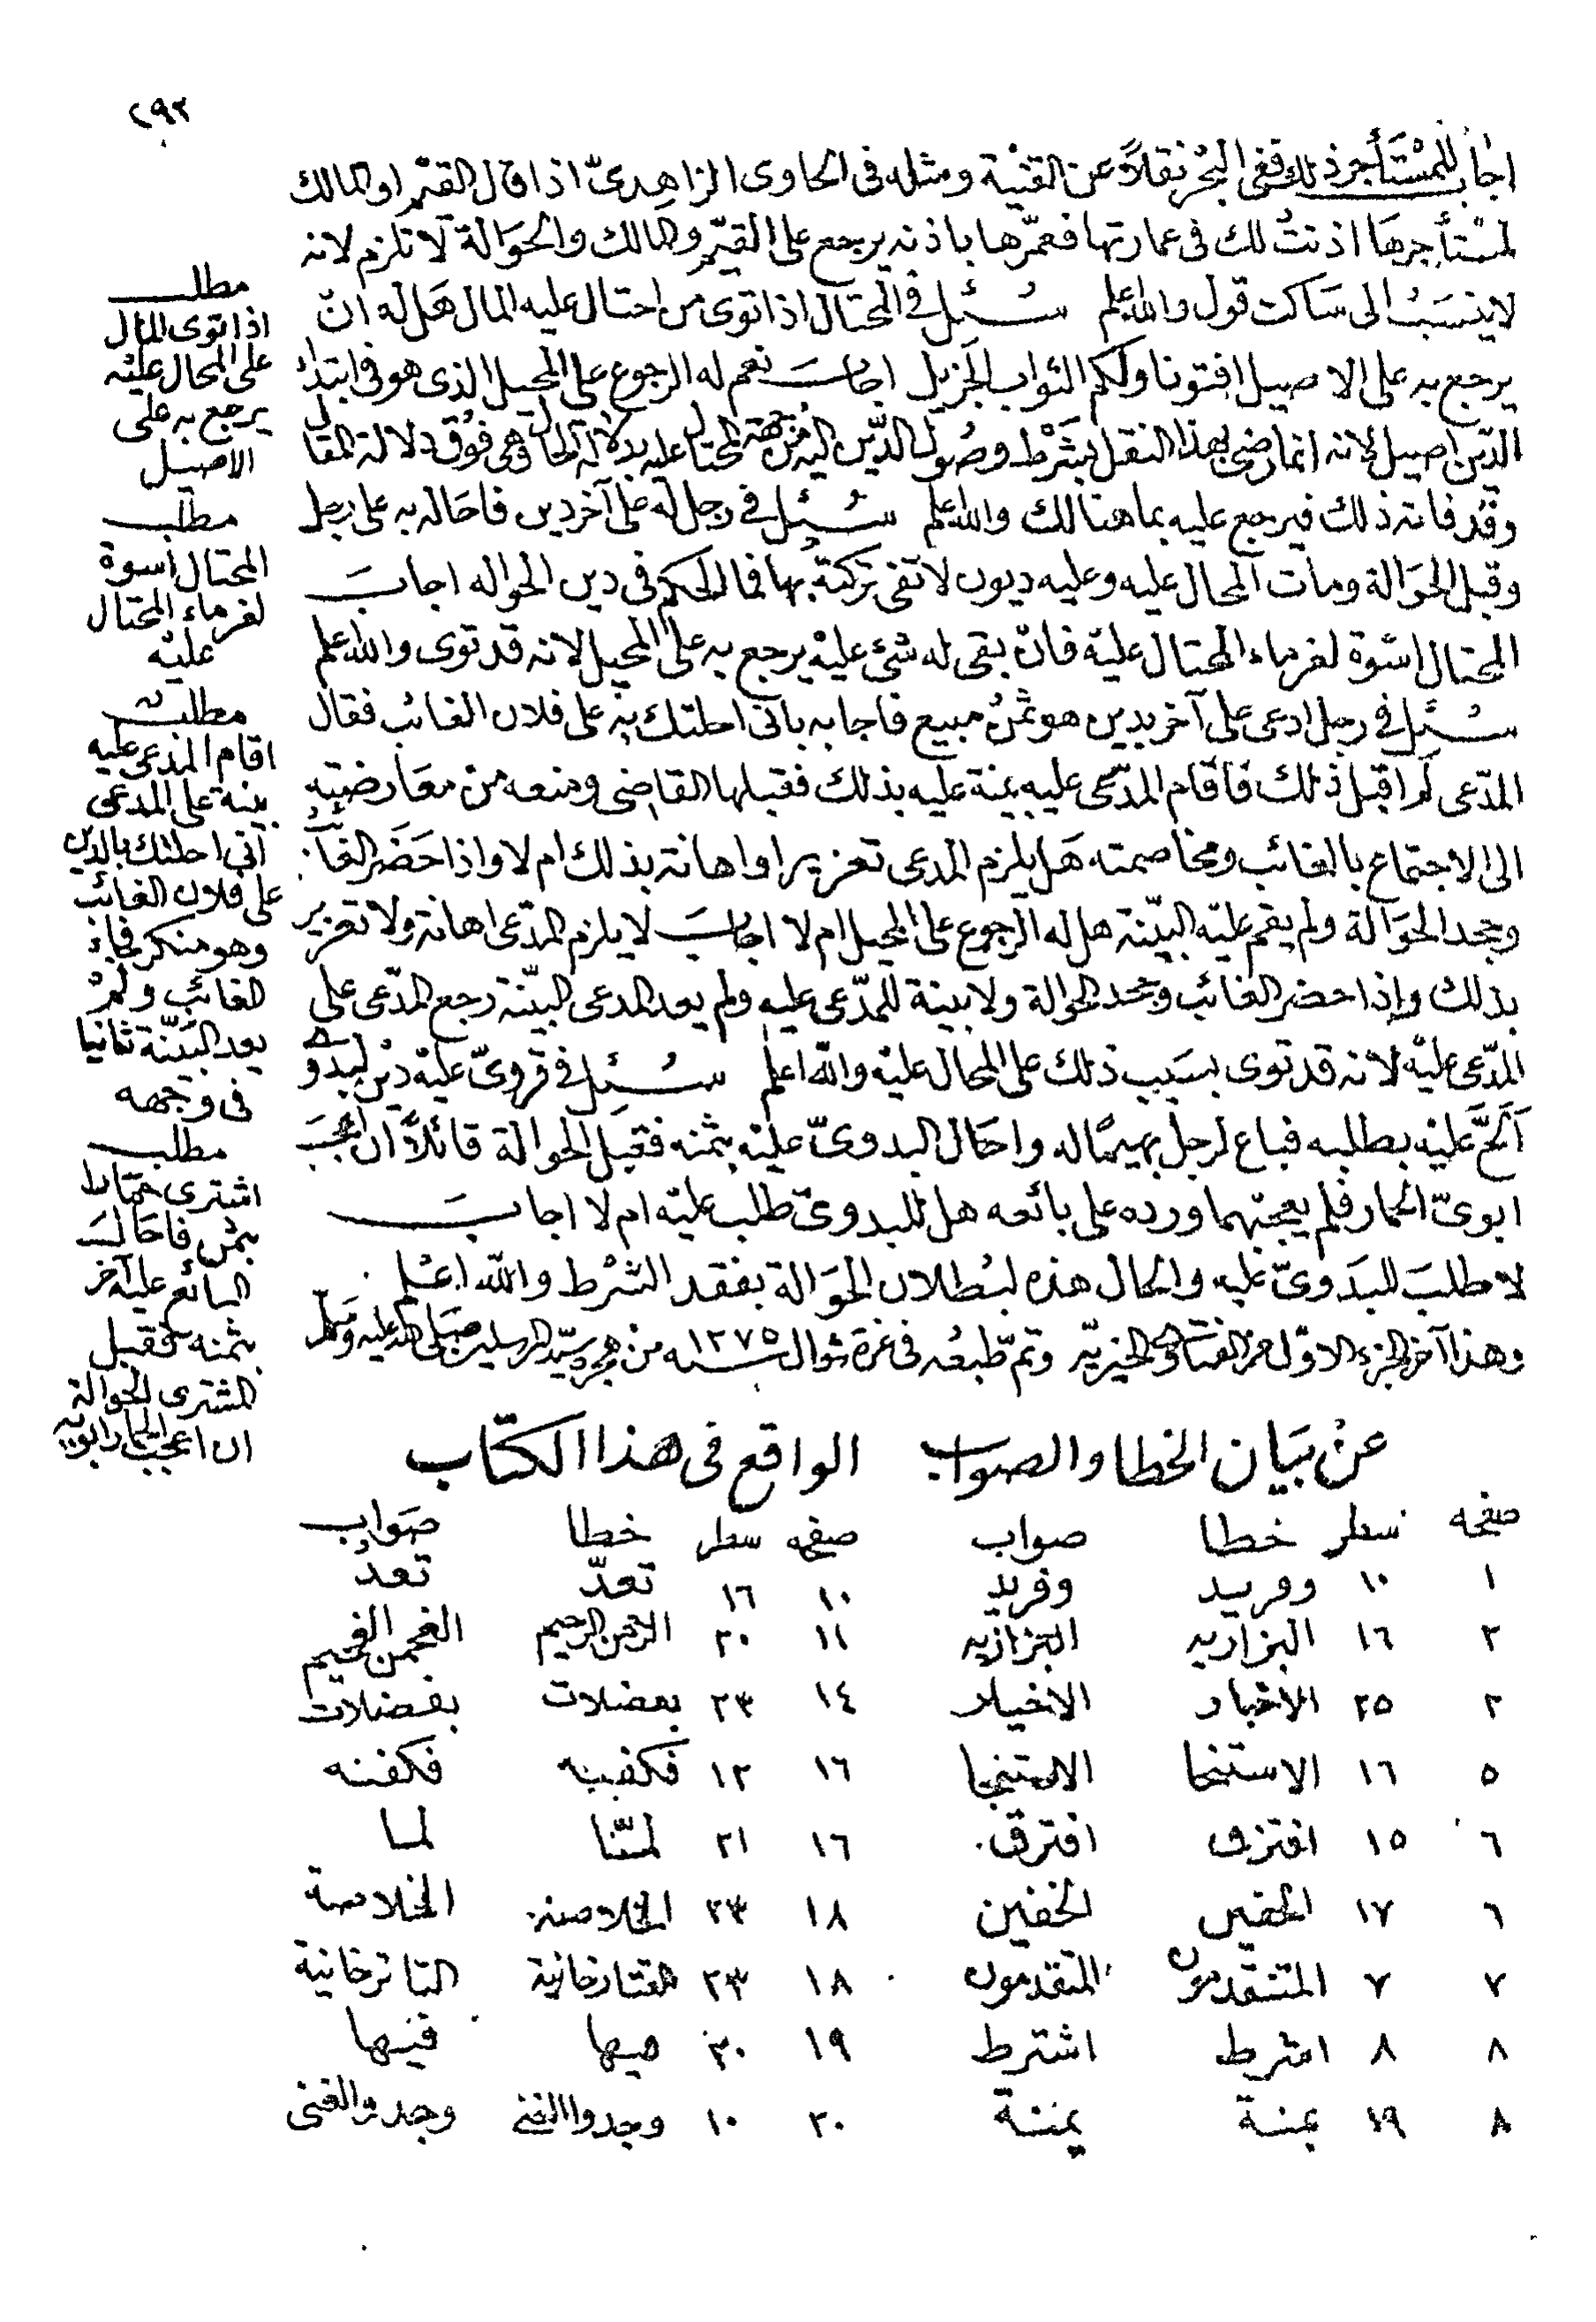 ٢٩٢
اجاب للمستأجر ذلك ففي البحر نقلاً عن القنية ومثله في الحاوى الزاهدىّ اذا قال القيّم او المالك
لمستأجرها اذنتُ لك فى عمارتها فعمّرها باذنه يرجع على القيّم والمالك والحوالة لا تلزم لانه
لا ينسبُ الى ساكت قول والله اعلم سئل فى المحتال اذا توى من احتال عليه المال هل له ان
يرجع به على الاصيل افتونا ولكم الثواب الجزيل اجاب نعم له الرجوع على المحيل الذى هو فى ابتداء
الدّين اصيل لانه انما رضى بهذا النقل بشرط وصول الدّين اليه من جهة المحتال عليه بدلالة الحال وهى فوق دلالة المقال
وقد فاته ذلك فيرجع عليه بما هنالك والله اعلم سئل فى رجل له على آخر دين فاحاله به على رجل
وقبل الحوالة ومات المحال عليه وعليه ديون لا تفى تركته بها فما الحكم فى دين الحواله اجاب
المحتال اسوة لغرماء المحتال عليه فان بقى له شئ عليه يرجع به على المحيل لانه قد توى والله اعلم
سئل فى رجل ادعى على آخر بدين هو ثمن مبيع فاجابه بانى احلتك به على فلان الغائب فقال
المدّعى لم اقبل ذلك فاقام المدّعى عليه بينة عليه بذلك فقبلها القاضى ومنعه من معارضته
الى الاجتماع بالغائب ومخاصمته هل يلزم المدعى تعزير او اهانة بذلك ام لا واذا حضر الغائب
وجحد الحوالة ولم يقم عليه البيّنة هل له الرجوع على المحيل ام لا اجاب لا يلزم المدّعى اهانة ولا تعزير
بذلك واذا حضر الغائب وجحد الحوالة ولا بينة للمدّعى عليه ولم يعد المدعى البيّنة رجع المدّعى على
المدّعى عليه لانه قد توى بسبب ذلك على المحال عليه والله اعلم سئل فى قروىّ عليه دين لبدوى
ألحّ عليه بطلبه فباع لرجل بهيمًا له واحال البدوىّ عليه بثمنه فقبل الحوالة قائلاً ان اعجب
ابوىّ الحمار فلم يعجبهما ورده على بائعه هل للبدوىّ طلب عليه ام لا اجاب
لا طلب للبدوىّ عليه والحال هذه لبطلان الحوالة بفقد الشرط والله اعلم
وهذا آخر الجزء الاوّل من الفتاوى الخيريّه وتمّ طبعُه فى غرة شوال سنه ١٢٧٥ من هجرة سيّد المرسلين صلى الله عليه وسلم
مطلب
اذا توى المال
على المحال عليه
يرجع به على
الاصيل
مطلب
المحتال اسوة
لغرماء المحتال
عليه
مطلب
اقام المدعى عليه
بينة على المدعى
انى احلتك بالدين
على فلان الغائب
وهو منكر فجاء
الغائب ولم
يعد البيّنة ثانيا
فى وجهه
مطلب
اشترى حمارا
بثمن فاحال
البائع عليه آخر
بثمنه فقبل
المشترى الحوالة
ان اعجب الحمار ابويه
عن بيان الخطا والصواب الواقع فى هذا الكتاب
صفحه سطر خطا صواب صفحه سطر خطا صواب
١ ١٠ ووريد وفريد ١٠ ١٦ تعدّ تعد
٢ ١٦ البزاريه البزازيه ١١ ٢٠ الرحمن الرحيم
٢ ٢٥ الاخبار الاخيار ١٤ ٢٣ بعضلات بفضلات
٥ ١٦ الاستنحا الاستنجا ١٦ ١٢ فكفبنه فكفنه
٦ ١٥ افتزق افترق ١٦ ٢١ لمّنا لما
٦ ١٧ الحفين الخفين ١٨ ٢٣ الخلاصنة الخلاصة
٧ ٧ المتنقدمون المتقدمون ١٨ ٢٣ التتارخانية التاترخانية
٨ ٨ اشرط اشترط ١٩ ٢٠ فيها
٨ ١٩ يمنة ٢٠ ١٠ وجدوا الغنى وجد والغنى